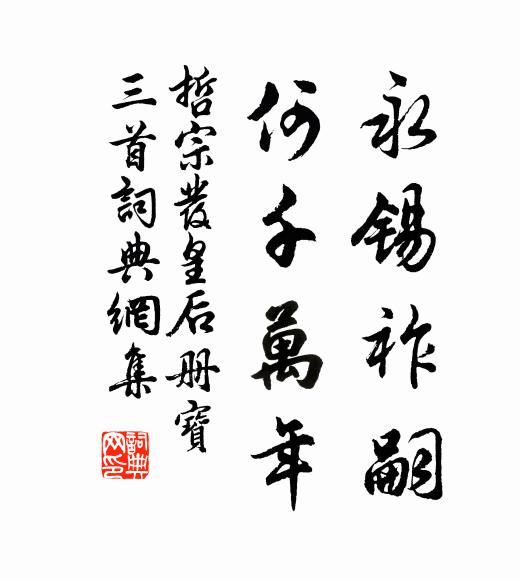 永錫祚嗣
何千萬年
哲宗發皇后册寶
三首詞典網集
詞典网印